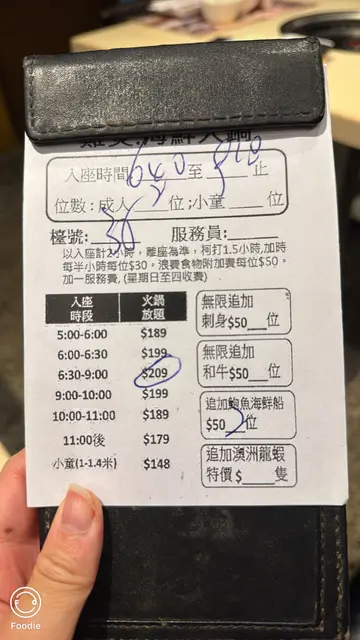 雞煲.海鮮火鍋
入座時間 640 至 840 止
位數:成人 2 位;小童 位
檯號: 36 服務員:
以入座計2小時, 離座為準, 柯打1.5小時,加時
每半小時每位$30。浪費食物附加費每位$50。
加一服務費, (星期日至四收費)
入座時段 火鍋放題
5:00-6:00 $189
6:00-6:30 $199
6:30-9:00 $209
9:00-10:00 $199
10:00-11:00 $189
11:00後 $179
小童(1-1.4米) $148
無限追加
刺身$50 位
無限追加
和牛$50 位
追加鮑魚海鮮船
$50 2 位
追加澳洲龍蝦
特價 $ 隻
Foodie